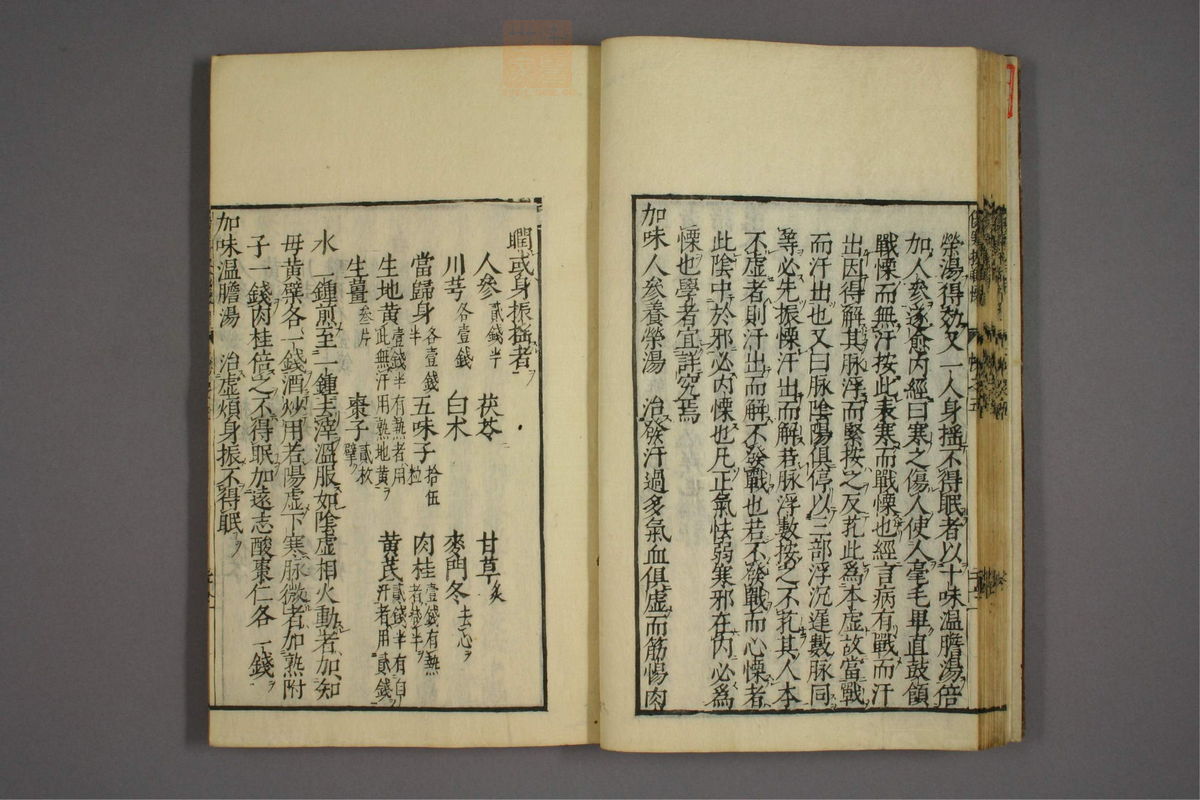 榮湯得効又一人身揺不得眠者以十味温膽湯倍
加人參遂愈内經曰寒之傷人使人毫毛畢直鼓頷
戰慄而無汗按此表寒而戰慄也經言病有戰而汗
出因得解其脉浮而緊按之反芤此爲本虚故當戰
而汗出也又曰脉陰陽俱停以三部浮沉遲數脉同
等必先振慄汗出而解若脉浮數按之不芤其人本
不虚者則汗出而解不發戰也若不發戰而心慄者
此陰中於邪必内慄也凡正氣怯弱寒邪在内必爲
慄也學者宜詳究焉
加味人參養榮湯 治發汗過多氣血俱虚而筋惕肉
瞤或身振揺者
人參 貳錢半 茯苓 甘草 炙
川芎 各壹錢 白术 麥門冬 去心
當歸身 各壹錢半 五味子 拾伍粒 肉桂 壹錢有熱者
生地黄 壹錢半有熱者用此無汗用熟地黄 黄芪 貳錢半有自汗者用貳錢
生薑 叁片 棗子 貳枚擘
水二鍾煎至一鍾去滓温服如陰虚相火動者加知
母黄蘗各一錢酒炒用若陽虚下寒脉微者加熟附
子一錢肉桂倍之不得眠加遠志酸棗仁各一錢
加味温膽湯 治虚煩身振不得眠